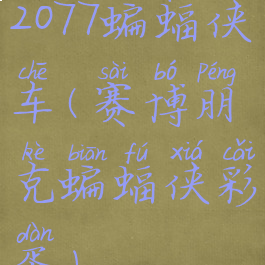 2077蝙蝠侠
chē sài bó péng
车（赛博朋
kè biān fú xiá cǎi
克蝙蝠侠彩
dàn
蛋）